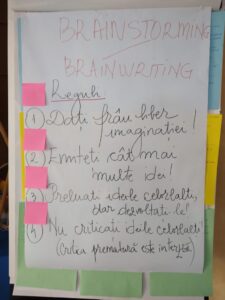 BRAINSTORMING
BRAINWRITING
Reguli
1 Dați frâu liber
imaginației!
2 Emiteți cât mai
multe idei!
3 Preluați ideile celorlalți,
dar dezvoltați-le!
4 Nu criticați ideile celorlalți
(Critica prematură este interzisă)